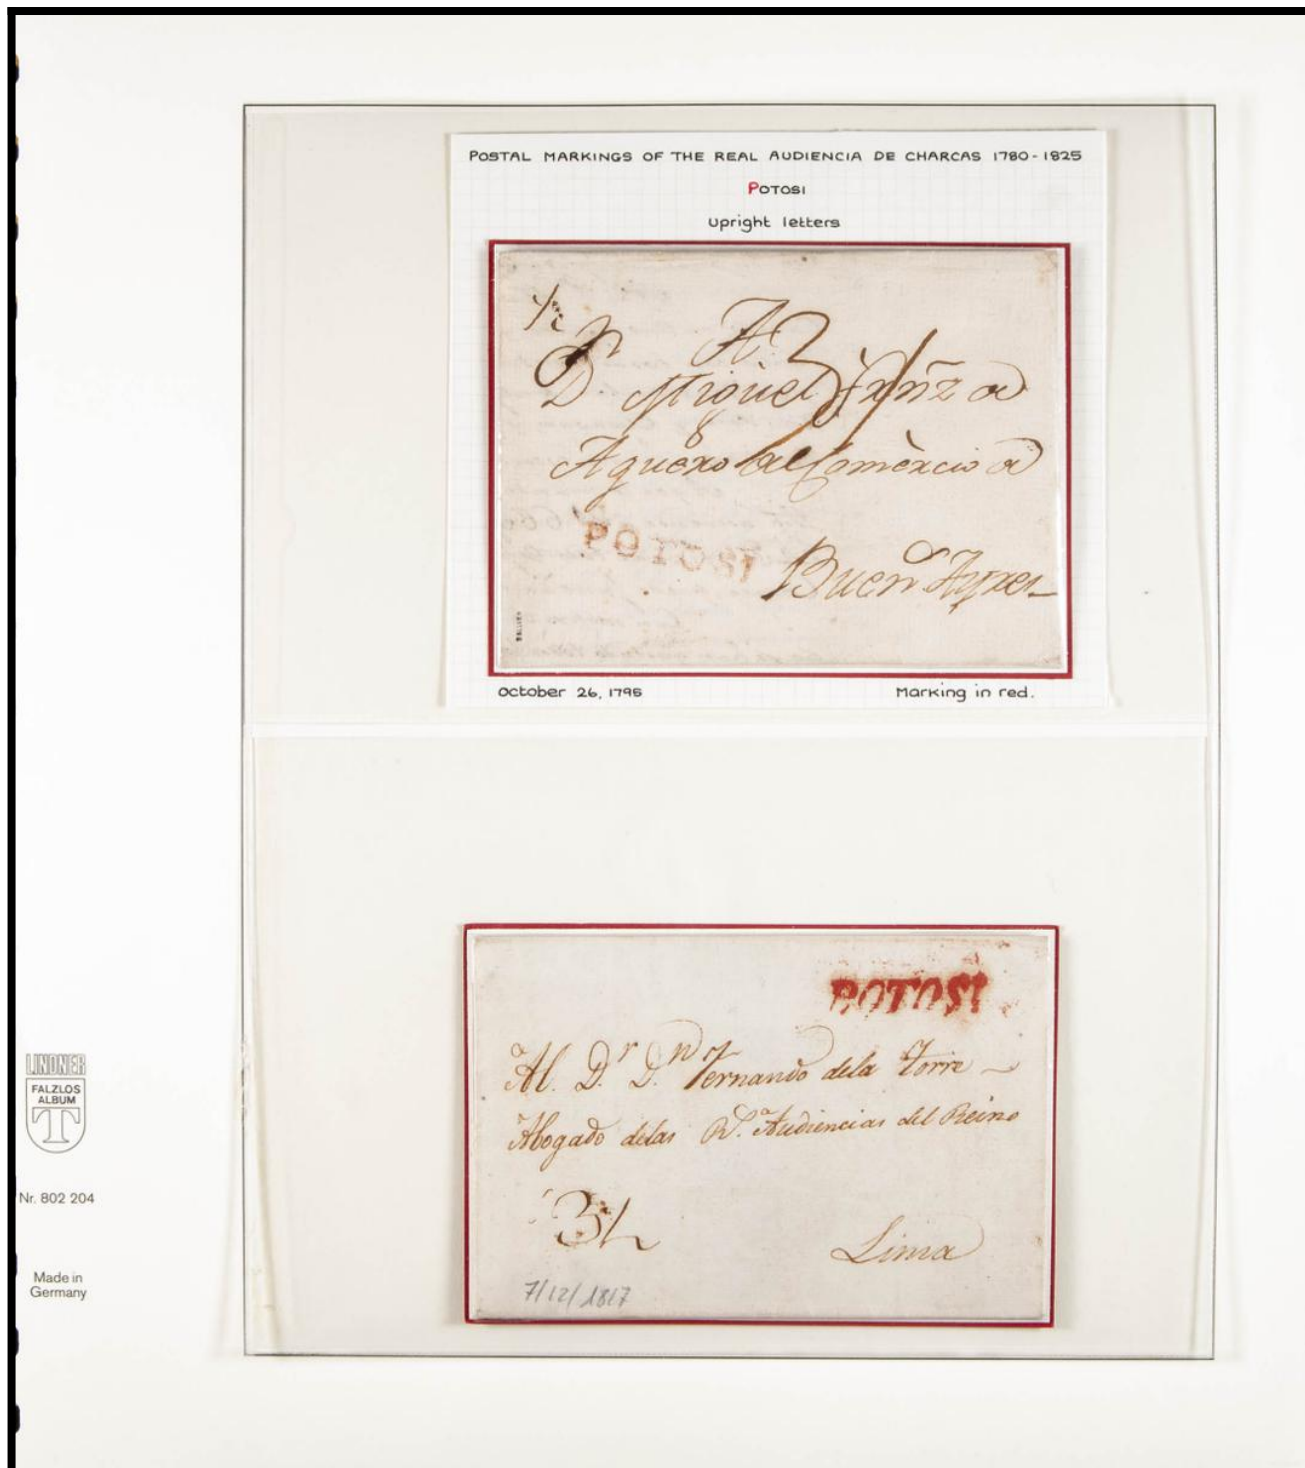 POSTAL MARKINGS OF THE REAL AUDIENCIA DE CHARCAS 1780-1825
POTOSI
Upright letters
A
D. Miguel Frñz d
Aguero del Comèrcio d
POTOSI
Buen Ayres
October 26, 1795
Marking in red.
POTOSI
Al. D.r D.n Fernando dela Torre
Abogado delas R.s Audiencias del Reino
3½
Lima
7/12/1817
LINDNER
FALZLOS
ALBUM
T
Nr. 802 204
Made in
Germany